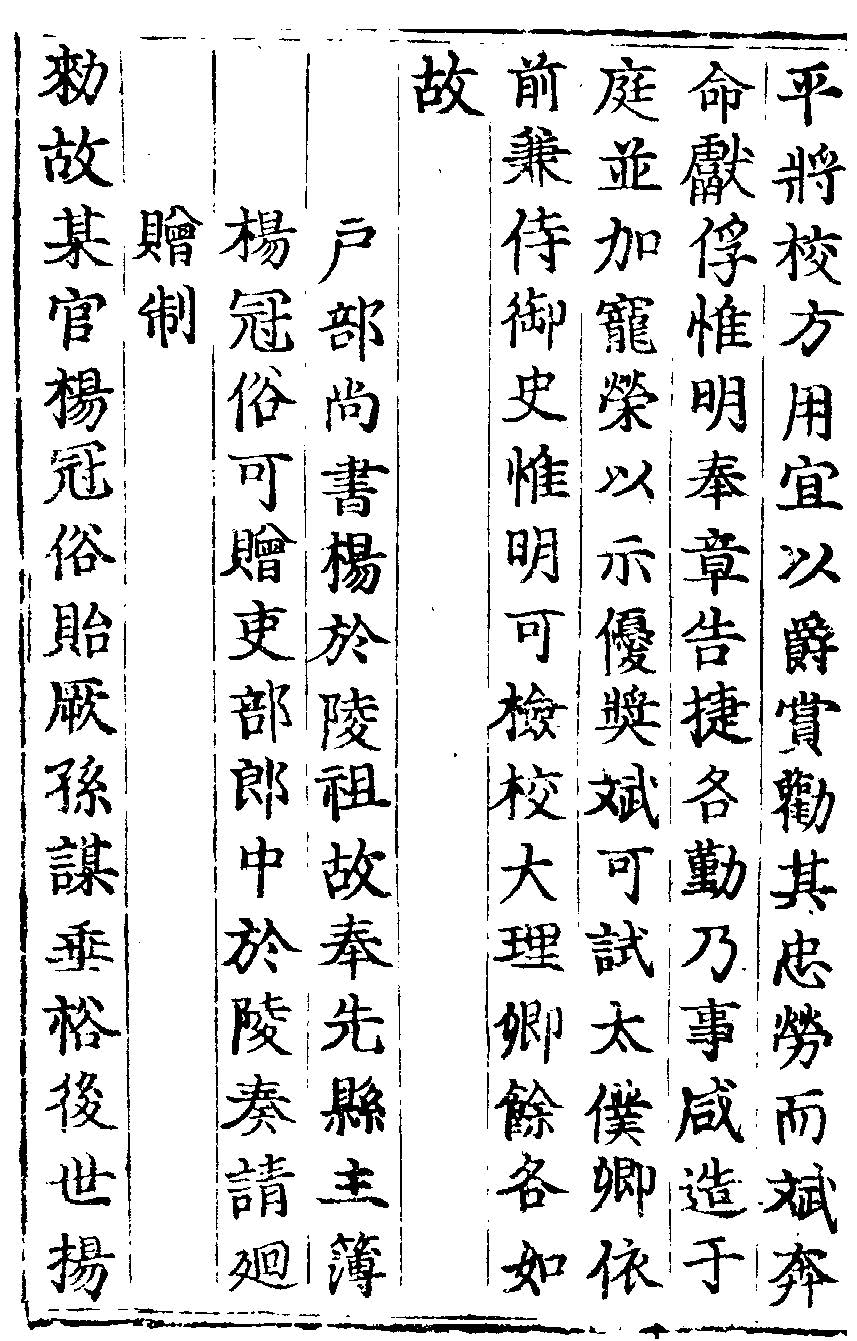 平將校方用宜以爵賞勸其忠勞而斌奔
命獻俘惟明奉章告捷各勤乃事咸造于
庭並加寵榮以示優奬斌可試太僕卿依
前兼侍御史惟明可檢校大理卿餘各如
故
戶部尚書楊於陵祖故奉先縣主簿
楊冠俗可贈吏部郎中於陵奏請廻
贈制
勑故某官楊冠俗貽厥孫謀垂裕後世揚